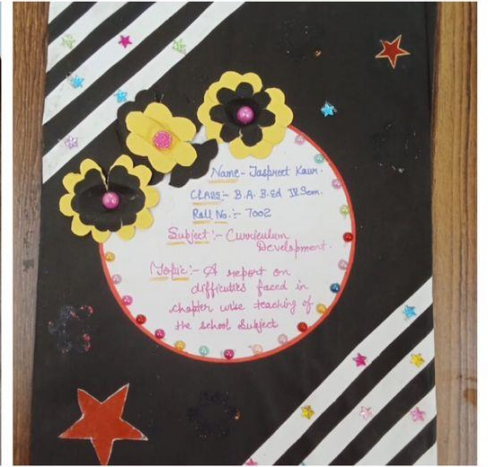 Name:- Jaspreet Kaur.
CLASS:- B.A. B.Ed IV Sem.
Roll No.:- 7002
Subject:- Curriculum
Development.
Topic:- A report on
difficulties faced in
chapter wise teaching of
the school subject